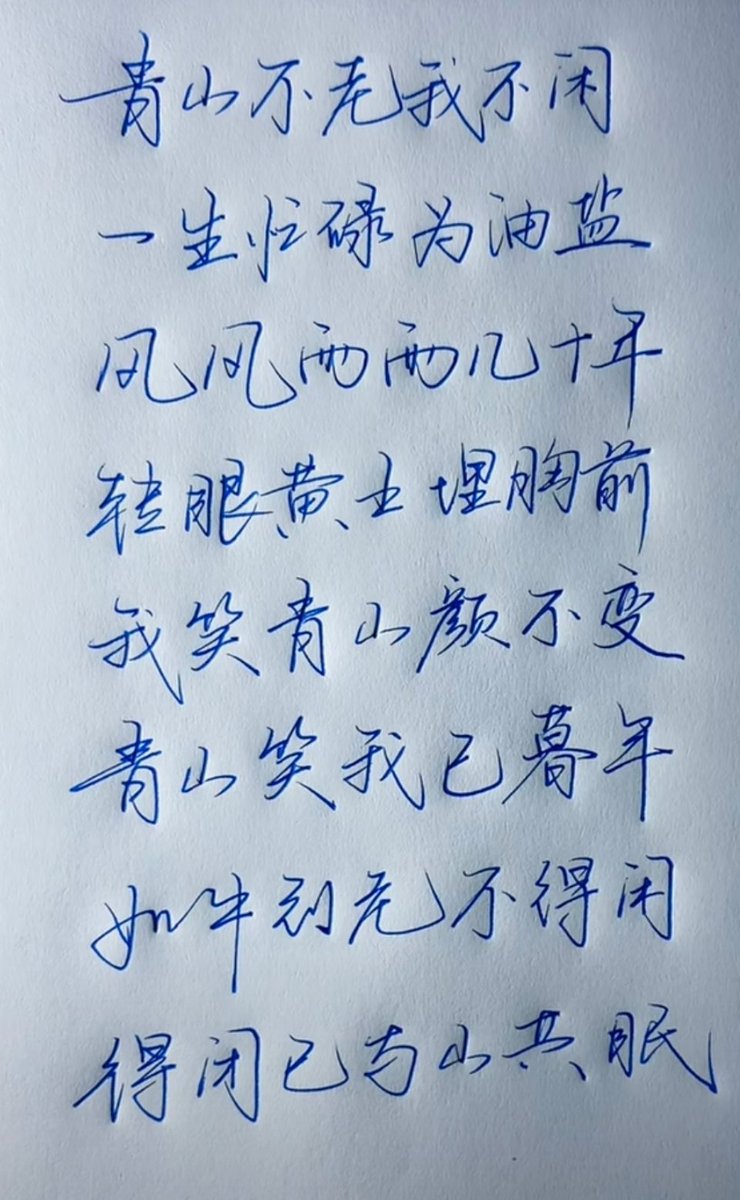 青山不老我不闲
一生忙碌为油盐
风风雨雨几十年
转眼黄土埋胸前
我笑青山颜不变
青山笑我已暮年
如牛到老不得闲
得闭已与山共眠